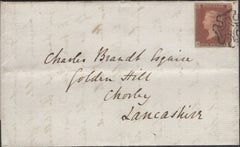 Charles Brandt Esquire
Golden Hill
Chorley
Lancashire